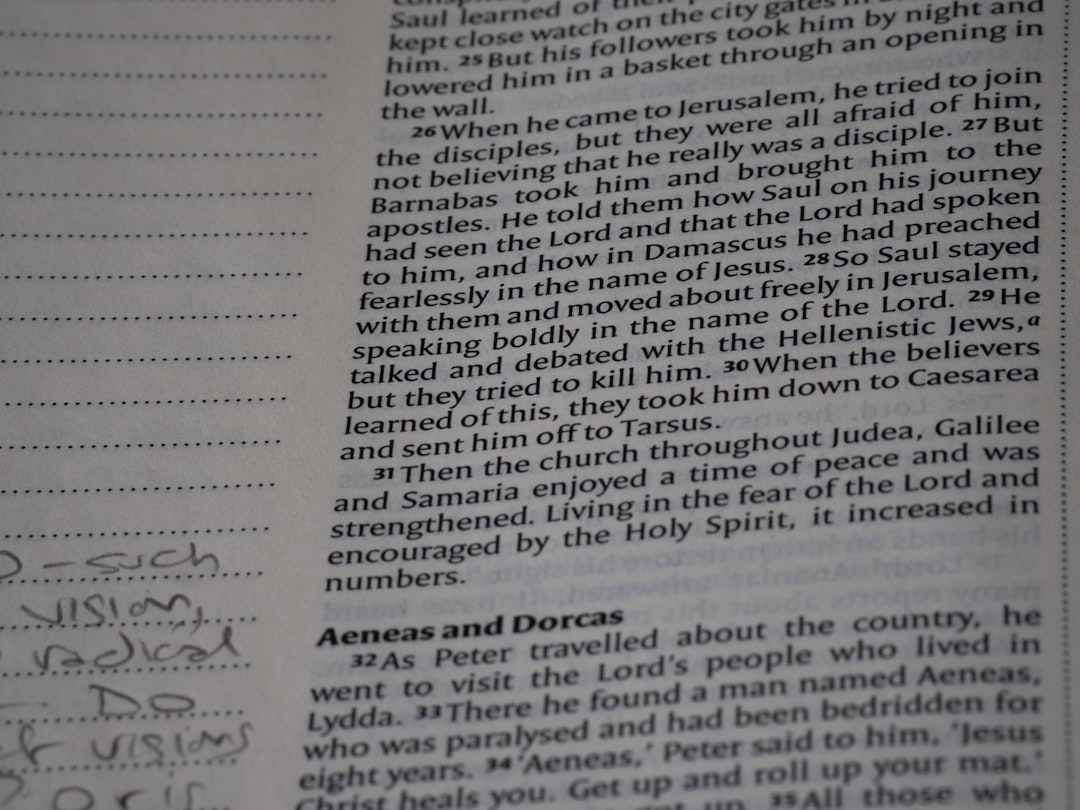 Saul learned of their
kept close watch on the city gates in
him. 25 But his followers took him by night and
lowered him in a basket through an opening in
the wall.
26 When he came to Jerusalem, he tried to join
the disciples, but they were all afraid of him,
not believing that he really was a disciple. 27 But
Barnabas took him and brought him to the
apostles. He told them how Saul on his journey
had seen the Lord and that the Lord had spoken
to him, and how in Damascus he had preached
fearlessly in the name of Jesus. 28 So Saul stayed
with them and moved about freely in Jerusalem,
speaking boldly in the name of the Lord. 29 He
talked and debated with the Hellenistic Jews,a
but they tried to kill him. 30 When the believers
learned of this, they took him down to Caesarea
and sent him off to Tarsus.
31 Then the church throughout Judea, Galilee
and Samaria enjoyed a time of peace and was
strengthened. Living in the fear of the Lord and
encouraged by the Holy Spirit, it increased in
numbers.
Aeneas and Dorcas
32 As Peter travelled about the country, he
went to visit the Lord's people who lived in
Lydda. 33 There he found a man named Aeneas,
who was paralysed and had been bedridden for
eight years. 34 'Aeneas,' Peter said to him, 'Jesus
Christ heals you. Get up and roll up your mat.'
got up. 35 All those who
– such
vision,
radical
– DO
visions